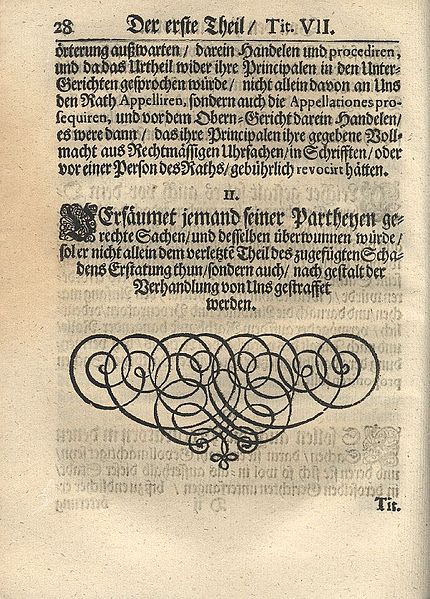 28 Der erste Theil / Tit. VII.
örterung außwarten / darein Handelen und procediren,
und da das Urtheil wider ihre Principalen in den Unter-
Gerichten gesprochen würde / nicht allein davon an Uns
den Rath Appelliren, sondern auch die Appellationes pro-
sequiren, und vor dem Obern-Gericht darein Handelen /
es were dann / das ihre Principalen ihre gegebene Voll-
macht aus Rechtmässigen Uhrsachen / in Schrifften / oder
vor einer Person des Raths / gebührlich revocirt hätten.
II.
VErsäumet jemand seiner Partheyen ge-
rechte Sachen / und desselben überwunnen würde /
sol er nicht allein dem verletztē Theil des zugefügten Scha-
dens Erstatung thun / sondern auch / nach gestalt der
Verhandlung von Uns gestraffet
werden.
Tit.